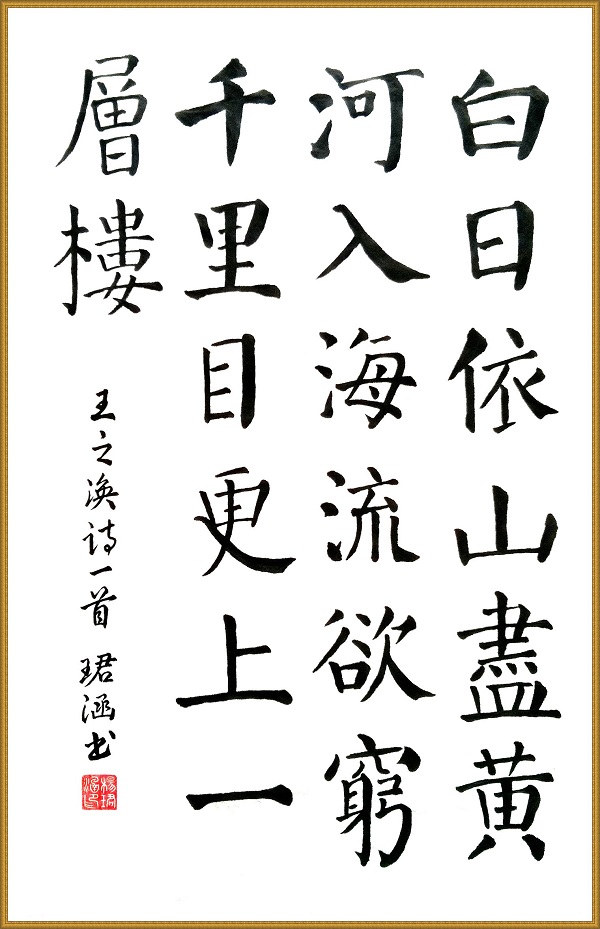 白日依山盡黄
河入海流欲窮
千里目更上一
層樓
王之涣诗一首 珺涵书
杨珺涵印